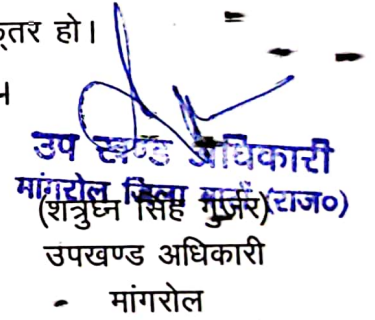 ्तर हो।
उप खण्ड अधिकारी
मांगरोल जिला (राज०)
(शत्रुघ्न सिंह गुर्जर)
उपखण्ड अधिकारी
मांगरोल